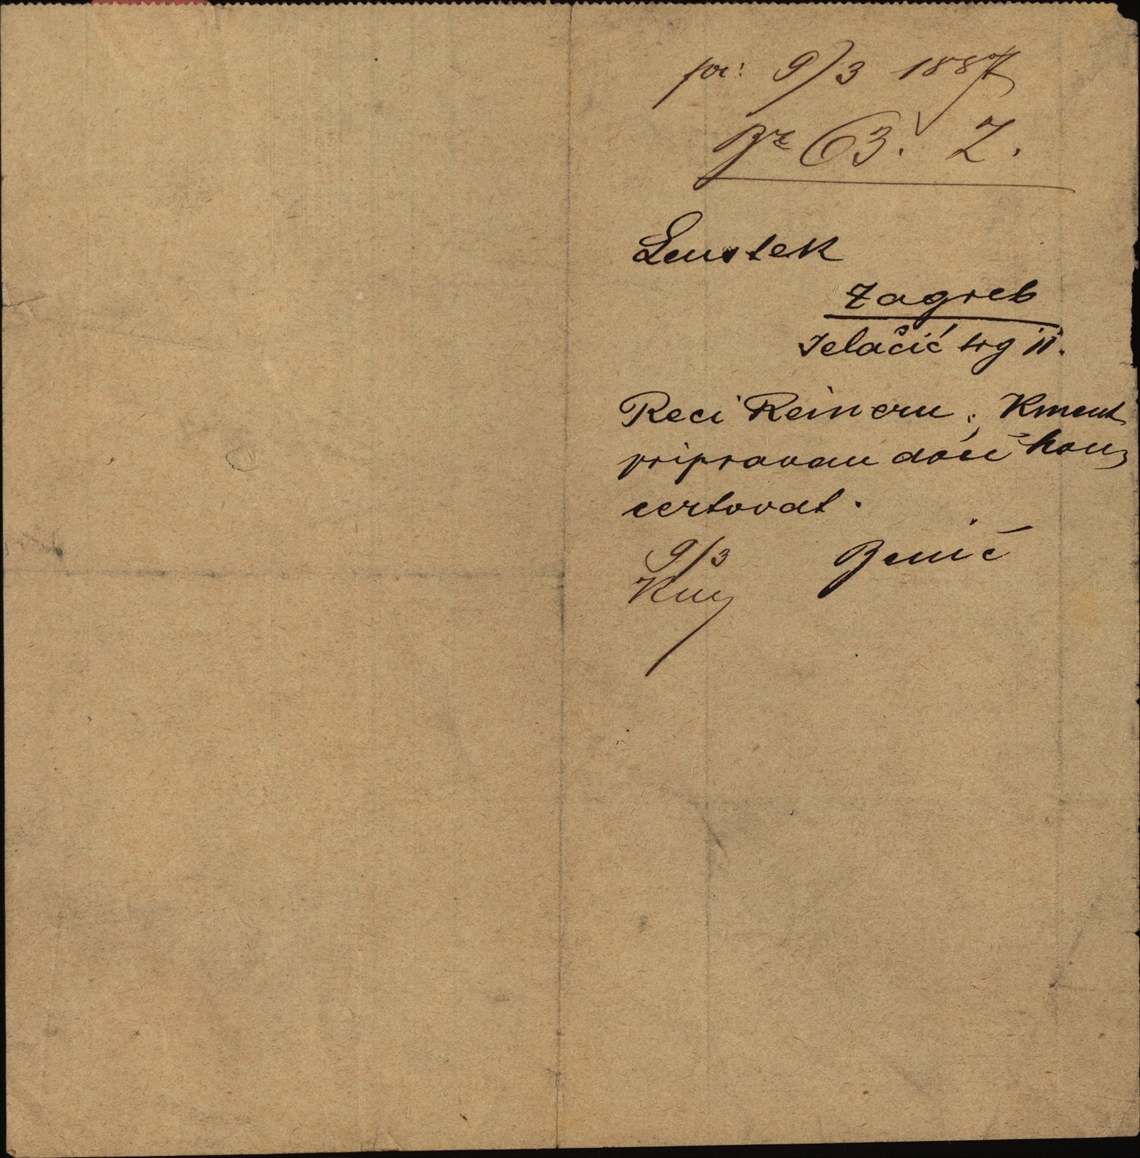 pr: 9/3 1887
Br 63. Z.
Lenstek
Zagreb
Jelačić trg 11.
Reci Reineru. Kment
pripravan doći kon
certovat.
9/3 Benić